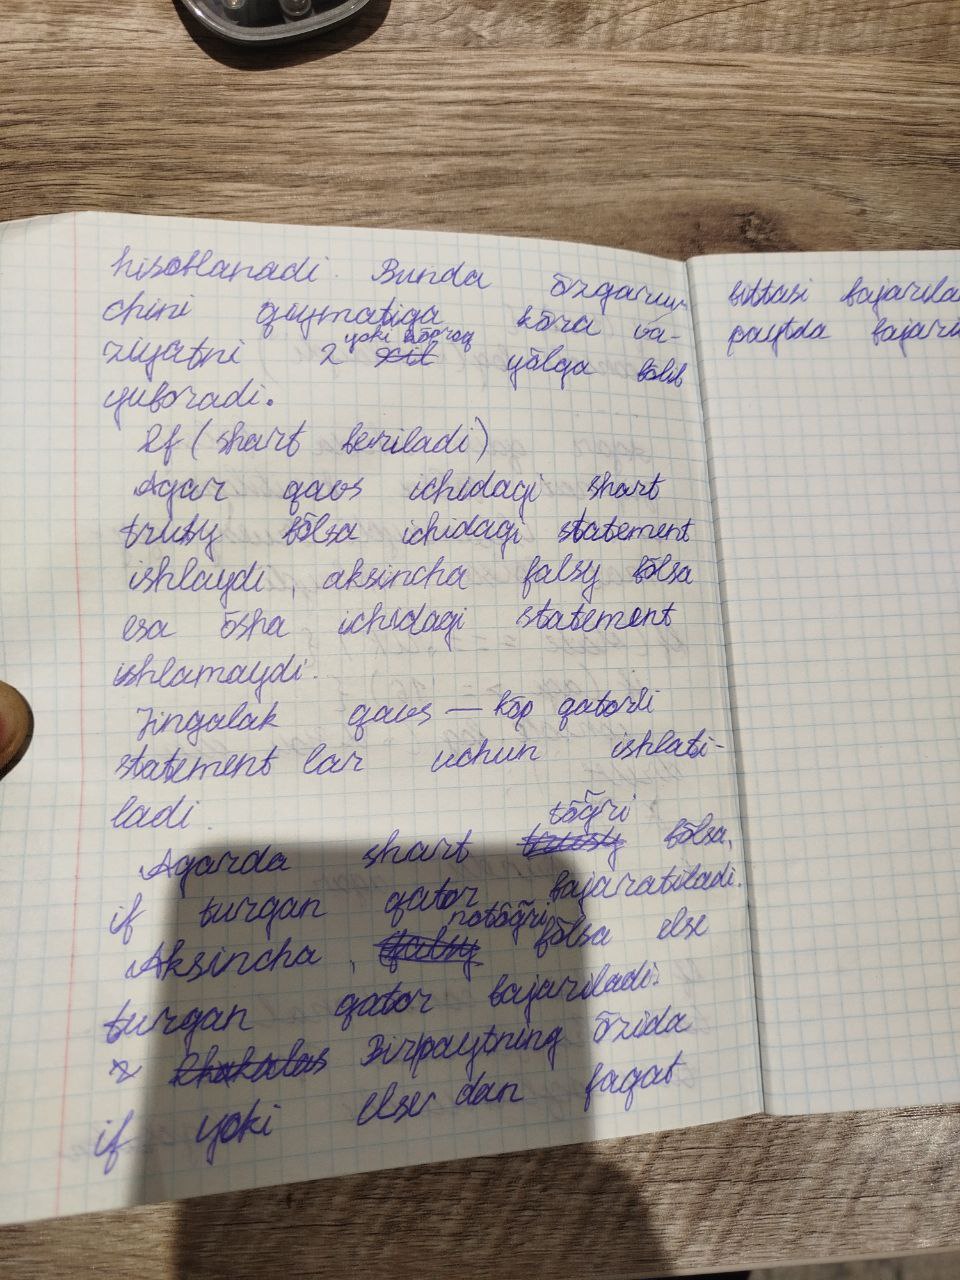 hisoblanadi. Bunda õzgaruv-
chini qiymatiga kõra va-
ziyatni 2 yoki kõproq xil yõlga bõlib
yuboradi.
If (shart beriladi)
Agar qavs ichidagi shart
truty bõlsa ichidagi statement
ishlaydi, aksincha falsy bõlsa
esa õsha ichidagi statement
ishlamaydi.
Jingalak qavs — kõp qatorli
statement lar uchun ishlati-
ladi.
Agarda shart tõğri bõlsa,
if turgan qator bajaratiladi.
Aksincha, notõğri bõlsa else
turgan qator bajariladi.
Birpaytning õzida
if yoki else dan faqat
bittasi bajarila
paytda bajari